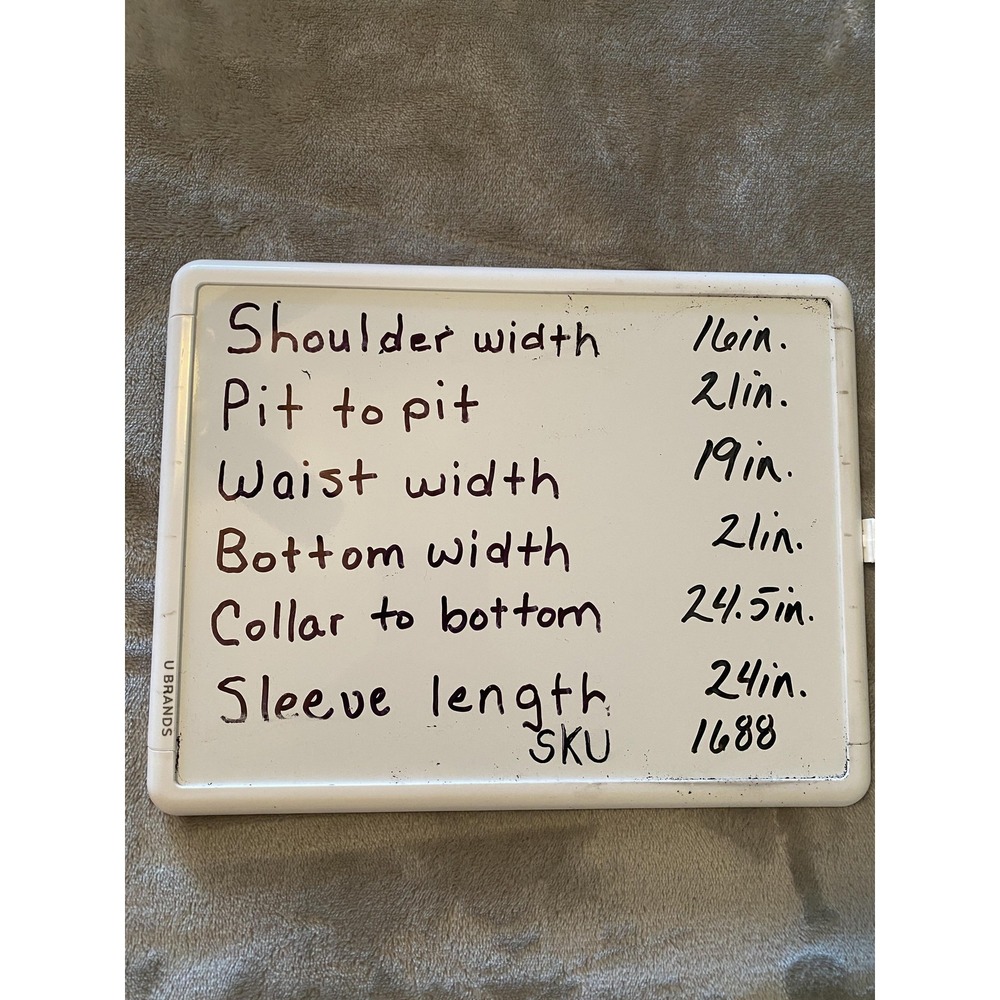 Shoulder width 16in.
Pit to pit 21in.
Waist width 19in.
Bottom width 21in.
Collar to bottom 24.5in.
Sleeve length 24in.
SKU 1688
U BRANDS